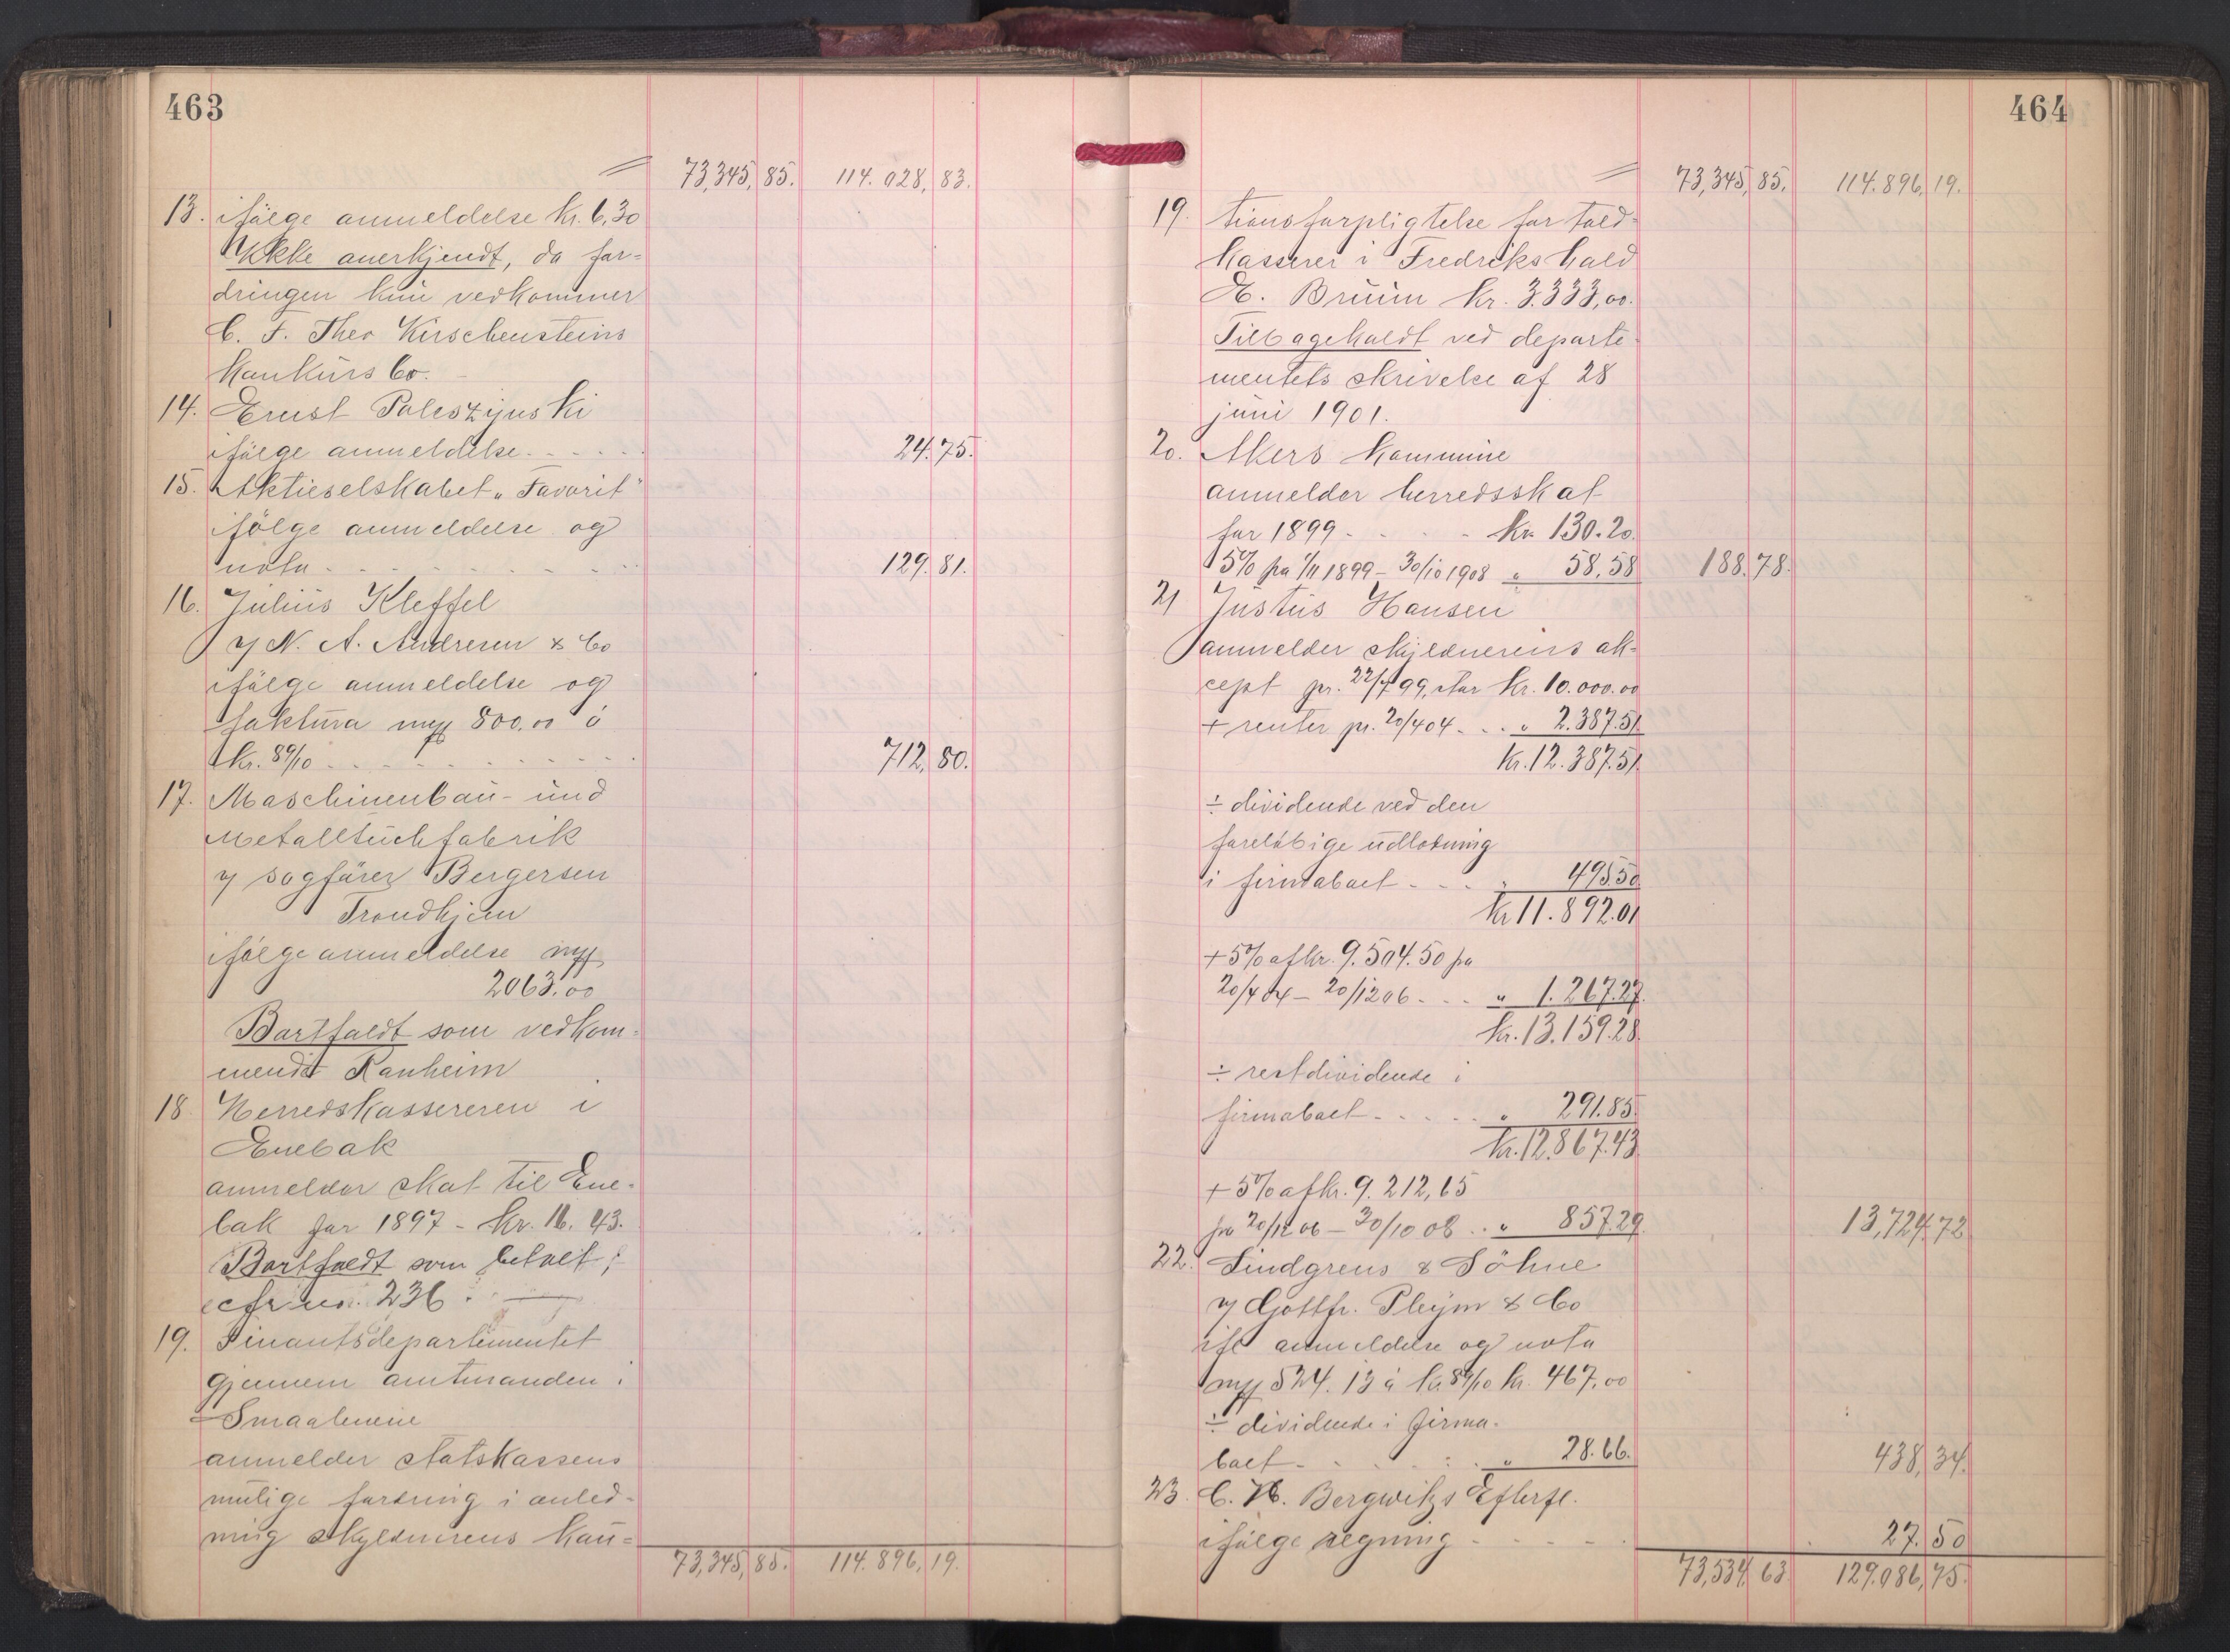 463
= 73,345, 85. 114.028, 83.
13. ifölge anmeldelse kr. 6,30
Ikke anerkjendt, da for-
dringen kun vedkommer
C. F. Theo Kirschensteins
konkurs bo.
14. Ernst Poleszynski
ifölge anmeldelse 24.75.
15. Aktieselskabet „Favorit"
ifölge anmeldelse og
nota 129.81.
16. Julius Kleffel
v/ N. A. Andresen & Co
ifölge anmeldelse og
faktura mk 800,00 à
kr. 89/10 712,80.
17. Maschinenbau- und
Metalltuchfabrik
v/ sagförer Bergersen
Trondhjem
ifölge anmeldelse mk
2063.00
Bortfaldt som vedkom-
mende Ranheim
18. Herredskassereren i
Enebak
anmelder skat til Ene-
bak for 1897 - kr. 16.43.
Bortfaldt som betalt;
cfr no. 236.
19. Finantsdepartementet
gjennem amtmanden i
Smaalenene
anmelder statskassens
mulige fordring i anled-
ning skyldnerens kau-
73,345, 85. 114.896, 19.
464
= 73,345, 85. 114.896, 19.
19. tionsforpligtelse for told-
kasserer i Fredrikshald
E. Bruun kr. 3.333,00.
Tilbageholdt ved departe-
mentets skrivelse af 28
juni 1901.
20. Akers kommune
anmelder herredsskat
for 1899 kr. 130.20.
5% fra 1/11 1899 - 30/10 1908 „ 58,58 188.78.
21 Justus Hansen
anmelder skyldnerens ak-
cept pr. 22/7 99, stor kr. 10.000.00
+ renter pr. 20/4 04 „ 2.387.51.
kr. 12.387.51.
÷ dividende ved den
forelöbige udlodning
i firmaboet „ 495.50
kr 11.892.01
+ 5% af kr. 9.504.50 fra
20/4 04 - 20/12 06 „ 1.267.27.
kr. 13.159.28.
÷ restdividende i
firmaboet „ 291.85.
kr. 12.867.43.
+ 5% af kr. 9.212,65
fra 20/12 06 - 30/10 08 „ 857.29. 13,724.72
22. Lindgrens & Söhne
v/ Gottfr. Pleym & Co
ifl anmeldelse og nota
mk 524.13 à kr. 89/10 kr. 467,00
÷ dividende i firma-
boet „ 28.66. 438,34.
23. C. H. Bergwitz Efterfl.
ifölge regning 27.50
73,534, 63. 129.086, 75.